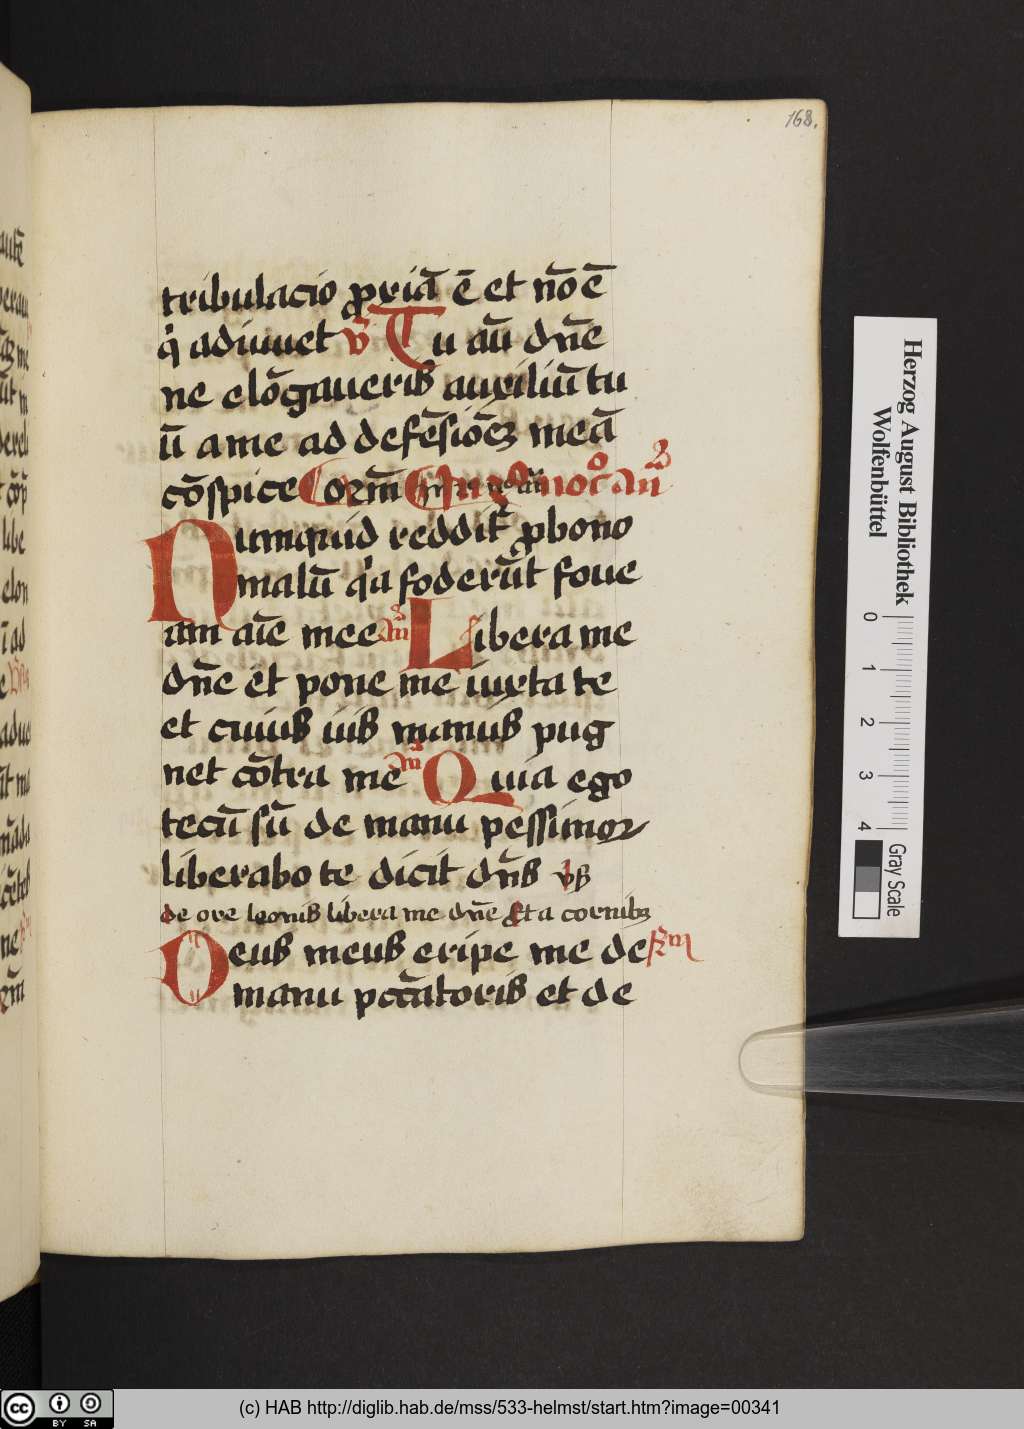 168.
tribulacio ꝓxiā ē et nōē
q̇ adiuuet v̄ Tu au̅ dn̄e
ne elōgaueris auxiliū tu
ū a me ad defēsiōeꝫ meā
cōspice Eorm̄
Numquid reddit̄ ꝓ bono
malū q̇a foderūt foue
am aīe mee an̄ Libera me
dn̄e et pone me iuxta te
et cuius uis manus pug
net cōtra me an̄ Quia ego
tecū sū de manu pessimoꝝ
liberabo te dicit dn̄s vs̄
de ore leonis libera me dn̄e Et a cornibꝫ
Deus meus eripe me de
manu pcc̄atoris et de
Herzog August Bibliothek
Wolfenbüttel
0 1 2 3 4
Gray Scale
cc BY SA
(c) HAB http://diglib.hab.de/mss/533-helmst/start.htm?image=00341